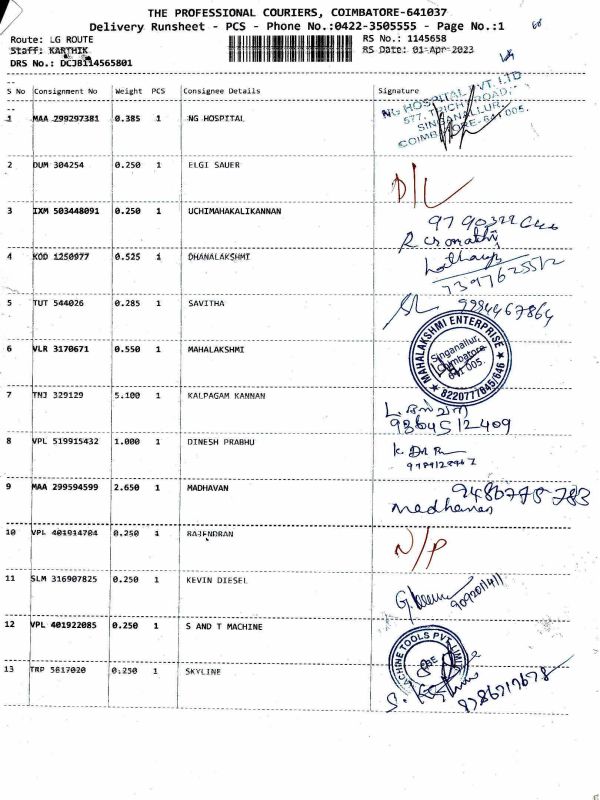 THE PROFESSIONAL COURIERS, COIMBATORE-641037
Delivery Runsheet - PCS - Phone No.:0422-3505555 - Page No.:1
Route: LG ROUTE RS No.: 1145658
Staff: KARTHIK RS Date: 01-Apr-2023
DRS No.: DCJB114565801
S No Consignment No Weight PCS Consignee Details Signature
1 MAA 299297381 0.385 1 NG HOSPITAL
NG HOSPITAL PVT. LTD
577, TRICHY ROAD,
SINGANALLUR,
COIMBATORE-641 005.
2 DUM 304254 0.250 1 ELGI SAUER D/L
3 IXM 503448091 0.250 1 UCHIMAHAKALIKANNAN
4 KOD 1250977 0.525 1 DHANALAKSHMI
5 TUT 544026 0.285 1 SAVITHA 9994467864
6 VLR 3170671 0.550 1 MAHALAKSHMI
MAHALAKSHMI ENTERPRISE
Singanallur,
Coimbatore
641 005.
8220777645/646
7 TNJ 329129 5.100 1 KALPAGAM KANNAN
9864512409
8 VPL 519915432 1.000 1 DINESH PRABHU
9 MAA 299594599 2.650 1 MADHAVAN
Madhavan
10 VPL 401914704 0.250 1 RAJENDRAN N/P
11 SLM 316907825 0.250 1 KEVIN DIESEL
9092011411
12 VPL 401922085 0.250 1 S AND T MACHINE
CHINE TOOLS PVT LIMIT
13 TRP 5817020 0.250 1 SKYLINE